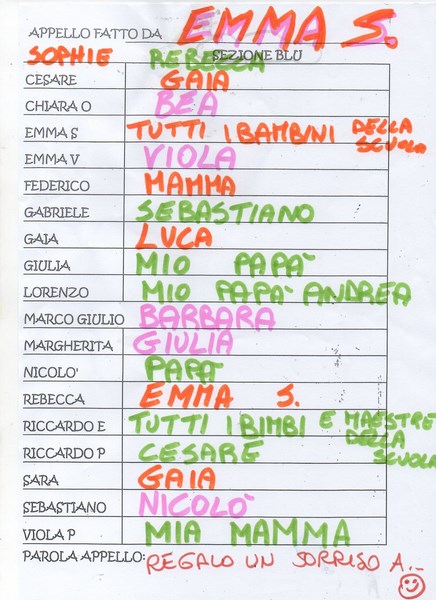 APPELLO FATTO DA EMMA S.
SEZIONE BLU
SOPHIE REBECCA
CESARE GAIA
CHIARA O BEA
EMMA S TUTTI I BAMBINI DELLA SCUOLA
EMMA V VIOLA
FEDERICO MAMMA
GABRIELE SEBASTIANO
GAIA LUCA
GIULIA MIO PAPA'
LORENZO MIO PAPA' ANDREA
MARCO GIULIO BARBARA
MARGHERITA GIULIA
NICOLO' PAPA'
REBECCA EMMA S.
RICCARDO E TUTTI I BIMBI E MAESTRE DELLA SCUOLA
RICCARDO P CESARE
SARA GAIA
SEBASTIANO NICOLO'
VIOLA P MIA MAMMA
PAROLA APPELLO: REGALO UN SORRISO A..